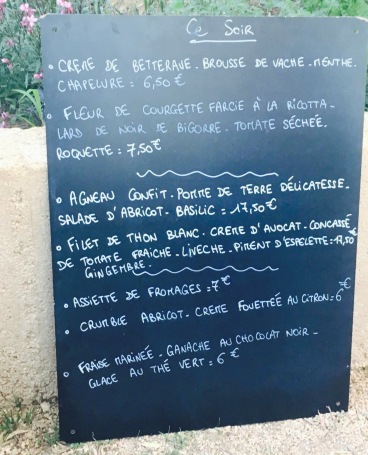 Ce Soir
• CREME DE BETTERAVE - BROUSSE DE VACHE - MENTHE.
CHAPELURE = 6,50 €
• FLEUR DE COURGETTE FARCIE À LA RICOTTA -
LARD DE NOIR DE BIGORRE - TOMATE SÉCHÉE.
ROQUETTE = 7,50€
• AGNEAU CONFIT - POMME DE TERRE DÉLICATESSE -
SALADE D'ABRICOT - BASILIC = 17,50€
• FILET DE THON BLANC - CREME D'AVOCAT - CONCASSÉ
DE TOMATE FRAICHE - LIVECHE - PIMENT D'ESPELETTE = 17,50€
GINGEMBRE.
• ASSIETTE DE FROMAGES = 7€
• CRUMBLE ABRICOT - CREME FOUETTÉE AU CITRON = 6€
• FRAISE MARINÉE - GANACHE AU CHOCOLAT NOIR -
GLACE AU THÉ VERT = 6€